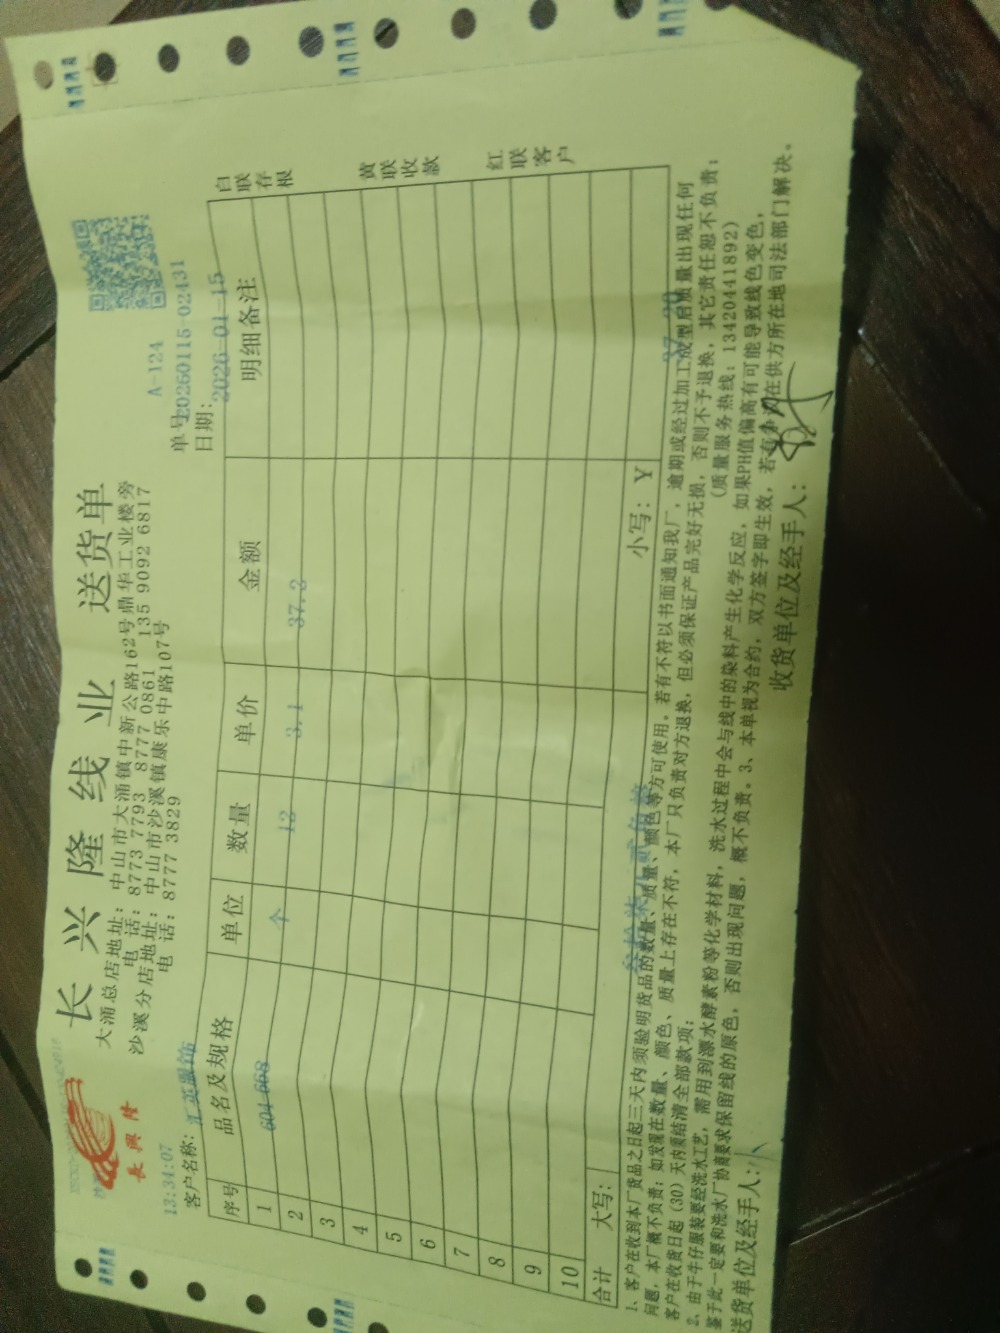 長興隆
长兴隆线业 送货单
大涌总店地址：中山市大涌镇中新公路162号鼎华工业楼旁
电 话：8773 7793 8777 0861 135 9092 6817
沙溪分店地址：中山市沙溪镇康乐中路107号
电 话：8777 3829
A-124
单号 20260115-02431
日期：2026-01-15
13:34:07
客户名称：江英服饰
序号 品名及规格 单位 数量 单价 金额 明细备注
1 604-668 个 12 3.1 37.2
2
3
4
5
6
7
8
9
10
合计 大写： 叁拾柒元贰角 小写：￥ 37.20
白联存根 黄联收款 红联客户
1、客户在收到本厂货品之日起三天内须验明货品的数量、质量、颜色等方可使用。若有不符以书面通知我厂，逾期或经过加工成型后质量出现任何
问题，本厂概不负责；如发现在数量、颜色、质量上存在不符，本厂只负责对方退换，但必须保证产品完好无损，否则不予退换，其它责任恕不负责；
客户在收货日起（30）天内须结清全部款项； （质量服务热线：13420441892）
2、由于牛仔服装要经洗水工艺，需用到漂水酵素粉等化学材料，洗水过程中会与线中的染料产生化学反应，如果PH值偏高有可能导致线色变色，
鉴于此一定要和洗水厂协商要求保留线的原色，否则出现问题，概不负责。3、本单视为合约，双方签字即生效，若有争议在供方所在地司法部门解决。
送货单位及经手人： 收货单位及经手人：